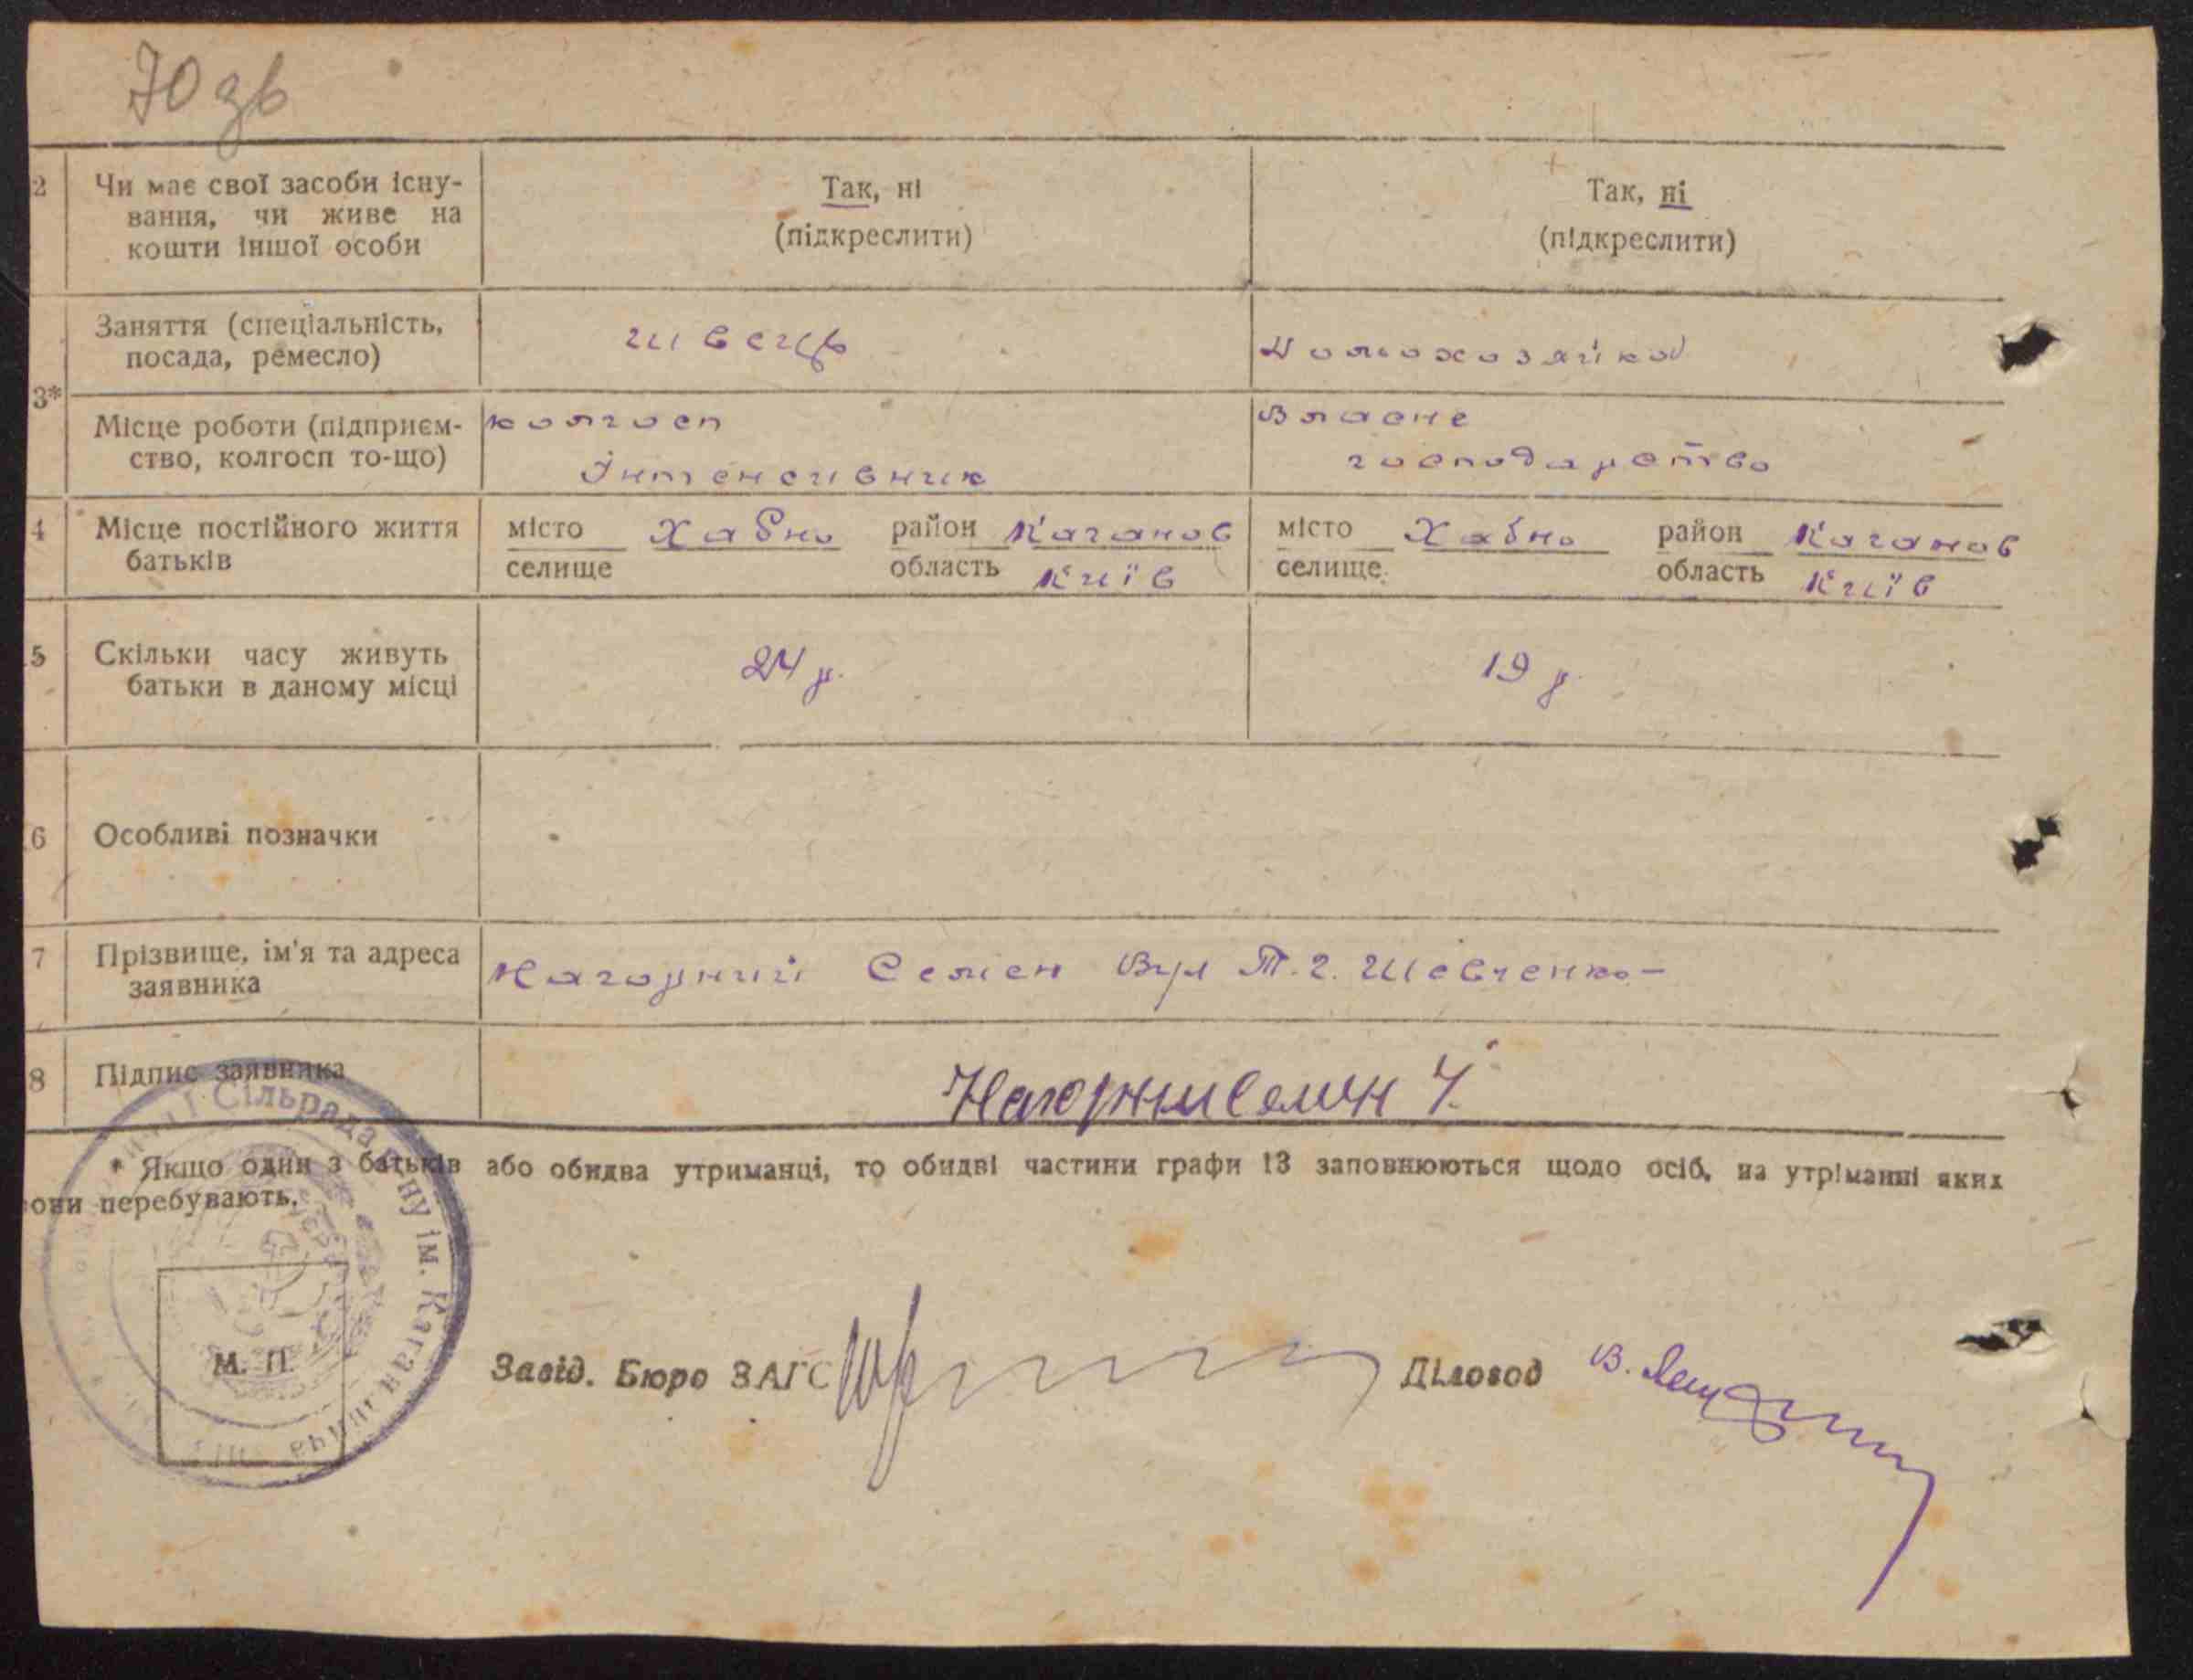 70 зв
2 Чи має свої засоби існу-
вання, чи живе на
кошти іншої особи
Так, ні
(підкреслити)
Так, ні
(підкреслити)
3*
Заняття (спеціальність,
посада, ремесло)
швець
Домохозяйка
Місце роботи (підприєм-
ство, колгосп то-що)
колгосп
Інтенсивник
Власне
господарство
4 Місце постійного життя
батьків
місто Хабно район Каганов
селище область Київ
місто Хабно район Каганов
селище область Київ
5 Скільки часу живуть
батьки в даному місці
24 р.
19 р.
6 Особливі позначки
7 Прізвище, ім'я та адреса
заявника
Нагорний Семен Вул Т.Г. Шевченко
8 Підпис заявника
Нагорний Семен
* Якщо один з батьків або обидва утриманці, то обидві частини графи 13 заповнюються щодо осіб, на утріманні яких
вони перебувають.
Сільрада ну ім. Кагановича
М. П.
Завід. Бюро ЗАГС
Діловод В.